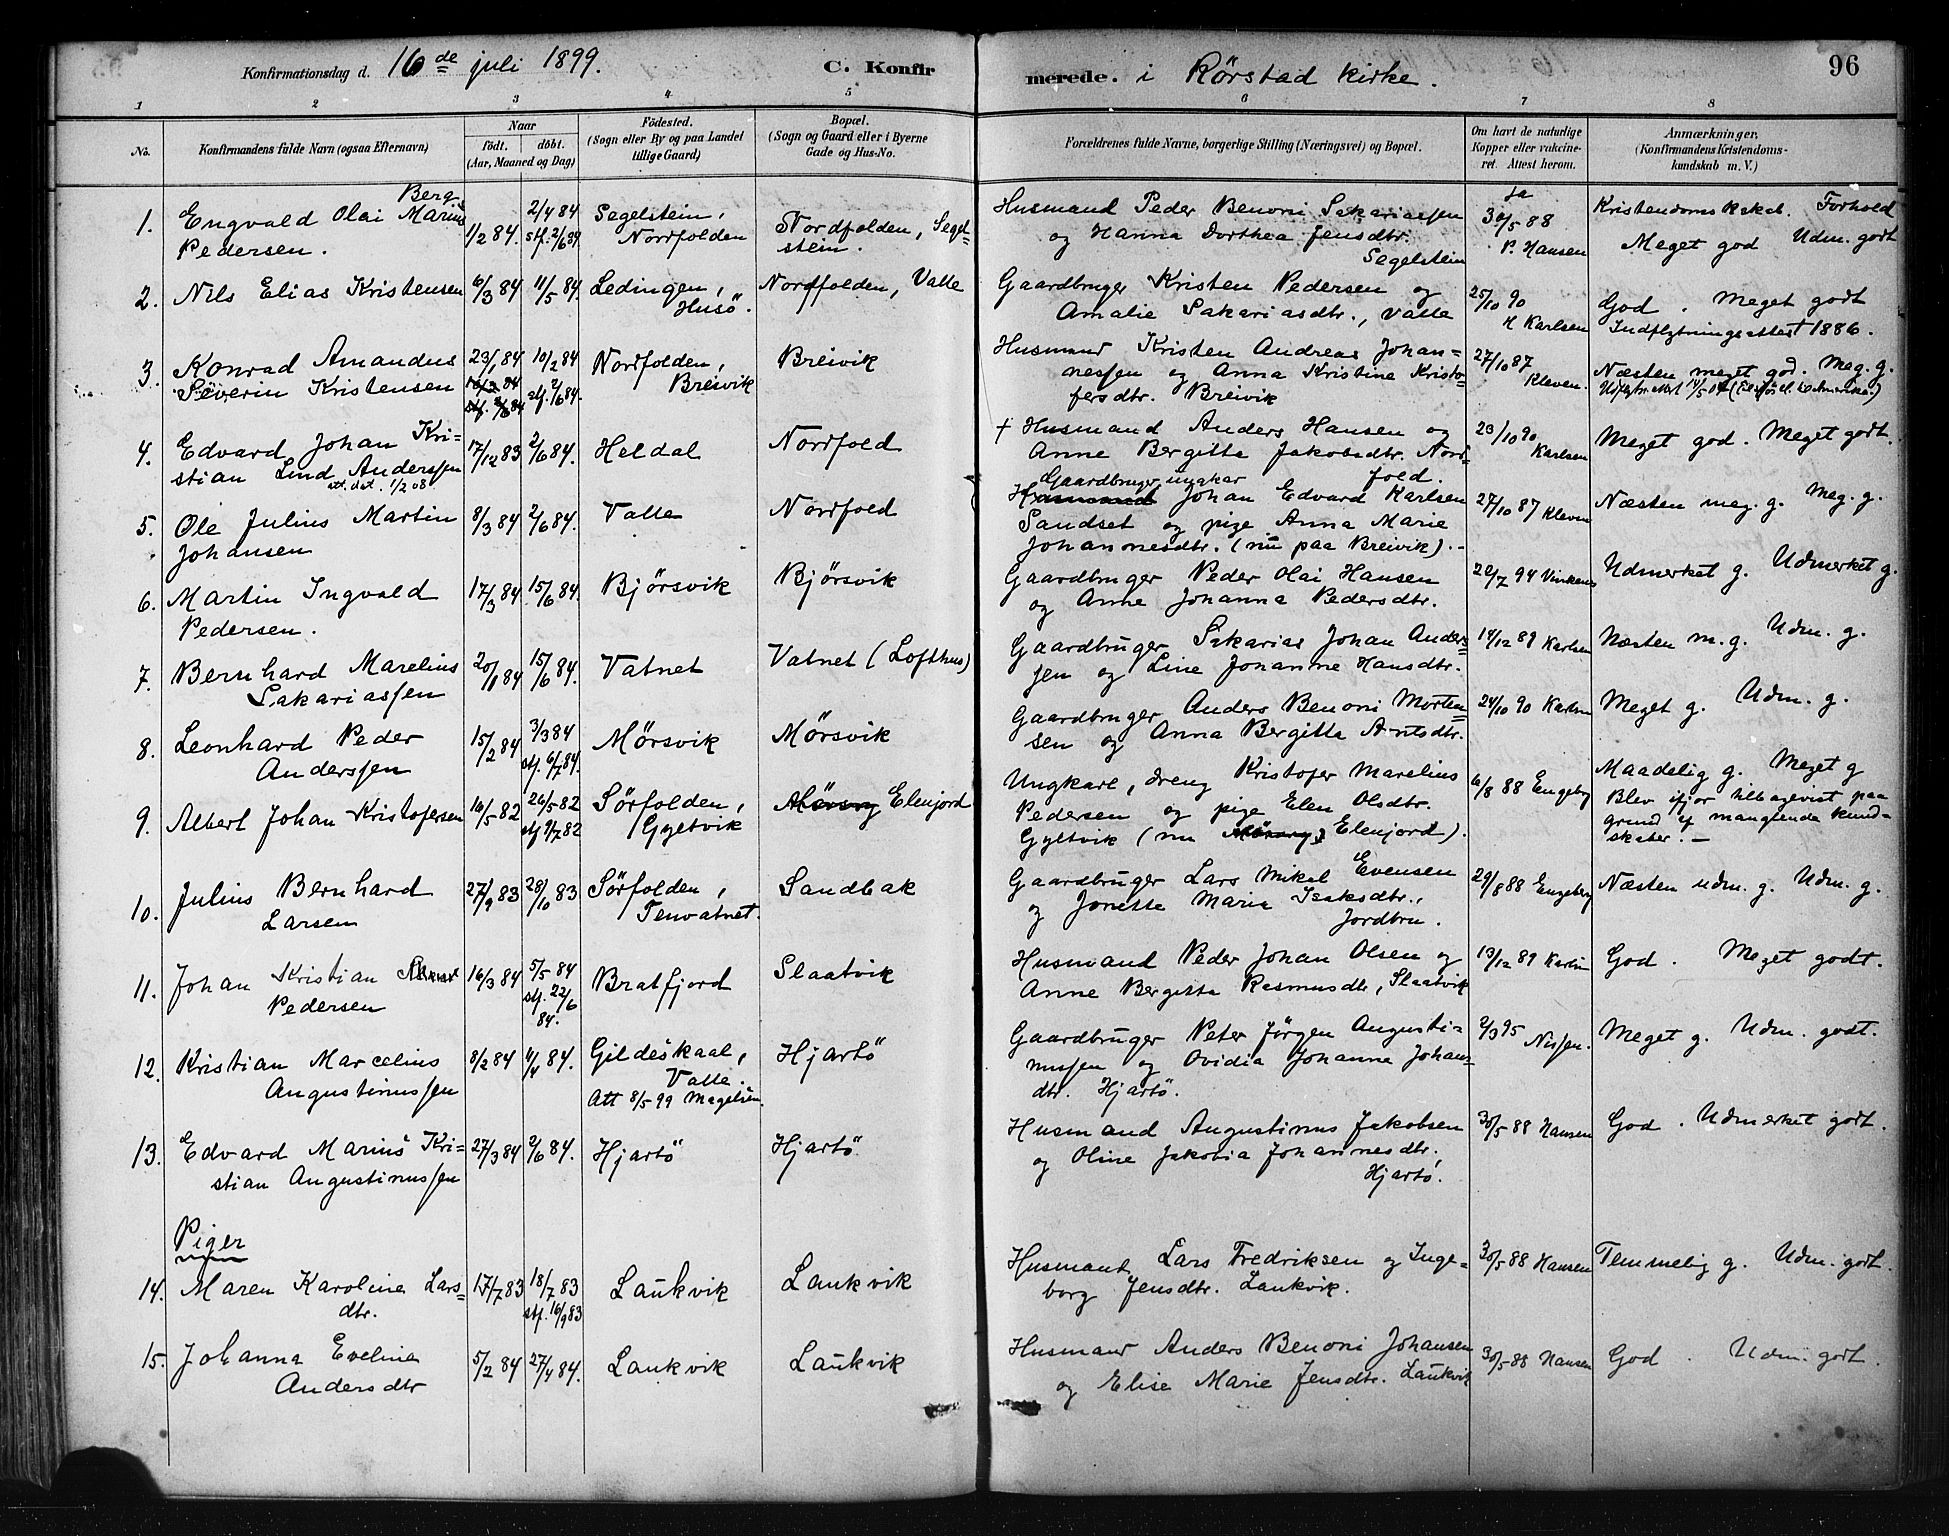 Konfirmationsdag d. 16de juli 1899. C. Konfirmerede. i Rørstad kirke. 96
1 2 3 4 5 6 7 8
No. Konfirmandens fulde Navn (ogsaa Efternavn)
Naar
født. døbt.
(Aar, Maaned og Dag)
Fødested.
(Sogn eller By og paa Landet
tillige Gaard)
Bopæl.
(Sogn og Gaard eller i Byerne
Gade og Hus-No.
Forældrenes fulde Navne, borgerlige Stilling (Næringsvei) og Bopæl.
Om havt de naturlige
Kopper eller vakcine-
ret. Attest herom.
Anmærkninger.
(Konfirmandens Kristendoms-
kundskab m. V.)
Berg.
1. Engvald Olai Marius
Pedersen.
1/2 84.
2/4 84
stf. 2/6 84
Segelstein,
Nordfolden
Nordfolden, Segel-
stein.
Husmand Peder Benoni Sakariassen
og Hanna Dorthea Jensdtr.
Segelstein
Ja
30/5 88
P. Hansen
Kristendomskskab. Forhold
Meget god Udm. godt
2. Nils Elias Kristensen
6/3 84
11/5 84.
Ledingen,
Husö.
Nordfolden, Valle
Gaardbruger Kristen Pedersen og
Amalie Sakariasdtr., Valle
25/10 90
H Karlsen
God. Meget godt
Indflytningsattest 1886.
3. Konrad Amandus
Severin Kristensen
23/1 84
10/2 84
stf. 2/6 84
10/2 84
stf. 2/6 84.
Nordfolden,
Breivik
Breivik
Husmand Kristen Andreas Johan=
nessen og Anna Kristine Kristo=
fersdtr. Breivik
27/10 87
Kleven.
Næsten meget god. Meg. g.
4. Edvard Johan Kri-
stian Lind Anderssen
att. dat. 1/2 08
17/12 83
2/6 84.
Heldal
Nordfold
+ Husmand Anders Hansen og
Anne Bergitta Jakobsdtr. Nord=
fold.
23/10 90
Karlsen
Meget god. Meget godt.
5. Ole Julius Martin
Johansen
8/3 84
2/6 84.
Valle
Nordfold
Gaardbruger, ungkar
Husmand Johan Edvard Karlsen
Sandset og pige Anna Marie
Johannesdtr. (nu paa Breivik).-
27/10 87 Kleven
Næsten meg. g. Meg. g.
6. Martin Ingvald
Pedersen.
17/3 84
15/6 84.
Bjørsvik
Bjørsvik
Gaardbruger Peder Olai Hansen
og Anne Johanna Pedersdtr.
22/7 94
Udmerket g. Udmerket g.
7. Bernhard Marelius
Sakariassen
20/1 84
15/6 84.
Vatnet
Vatnet (Lofthus)
Gaardbruger Sakarias Johan Ander=
sen og Line Johanne Hansdtr.
14/12 89 Karlsen
Næsten m. g. Udm. g.
8. Leonhard Peder
Anderssen
15/2 84
3/3 84
stf. 6/7 84.
Mørsvik
Mørsvik
Gaardbruger Anders Benoni Morten=
sen og Anna Bergitta Arntsdtr.
24/10 90 Karlsen
Meget g. Udm. g.
9. Albert Johan Kristofersen
16/5 82
26/5 82
stf 9/7 82
Sörfolden,
Gyltvik
Elenjord
Ungkarl, dreng Kristofer Marelius
Pedersen og pige Elen Olsdtr.
Gyltvik (nu Elenjord).
6/8 88 Engeberg
Maadelig g. Meget g
Blev ifjor tilbagevist paa
grund af manglende kund-
skaber. —
10. Julius Bernhard
Larsen
27/9 83
28/10 83
Sörfolden,
Tenvatnet.
Sandbak
Gaardbruger Lars Mikal Evensen
og Jonette Marie Isaksdtr.,
Jordbru.
29/8 88 Engeberg
Næsten udm. g. Udm. g.
11. Johan Kristian
Pedersen
16/3 84
5/5 84
stf. 22/6
84.
Bratfjord
Slaatvik
Husmand Peder Johan Olsen og
Anne Bergitta Rasmusdtr, Slaatvik
13/12 89 Karlsen
God. Meget godt.
12. Kristian Marcelius
Augustinussen
8/2 84
11/4 84.
Gildeskaal,
Valle.
Att 8/5 99 Magelsen.
Hjartö
Gaardbruger Peter Jörgen Augusti-
nussen og Ovidia Johanne Johans=
dtr. Hjartö.
2/3 95 Nissen.
Meget g. Udm. godt.
13. Edvard Marius Kri-
stian Augustinussen
27/3 84
2/6 84.
Hjartö
Hjartö
Husmand Augustinus Jakobsen
og Oline Jakobia Johannesdtr,
Hjartö.
30/5 88 Hansen
God. Udmerket godt.
Piger
14. Maren Karoline Lars=
dtr.
17/7 83
18/7 83
stf. 16/9 83
Laukvik
Laukvik
Husmand Lars Fredriksen og Inge-
borg Jensdtr. Laukvik.
30/5 88 Hansen
Temmelig g. Udm. godt.
15. Johanna Eveline
Andersdtr
5/2 84
27/4 84.
Laukvik
Laukvik
Husmand Anders Benoni Johansen
og Elise Marie Jensdtr. Laukvik
30/5 88 Hansen
God. Udm. godt.